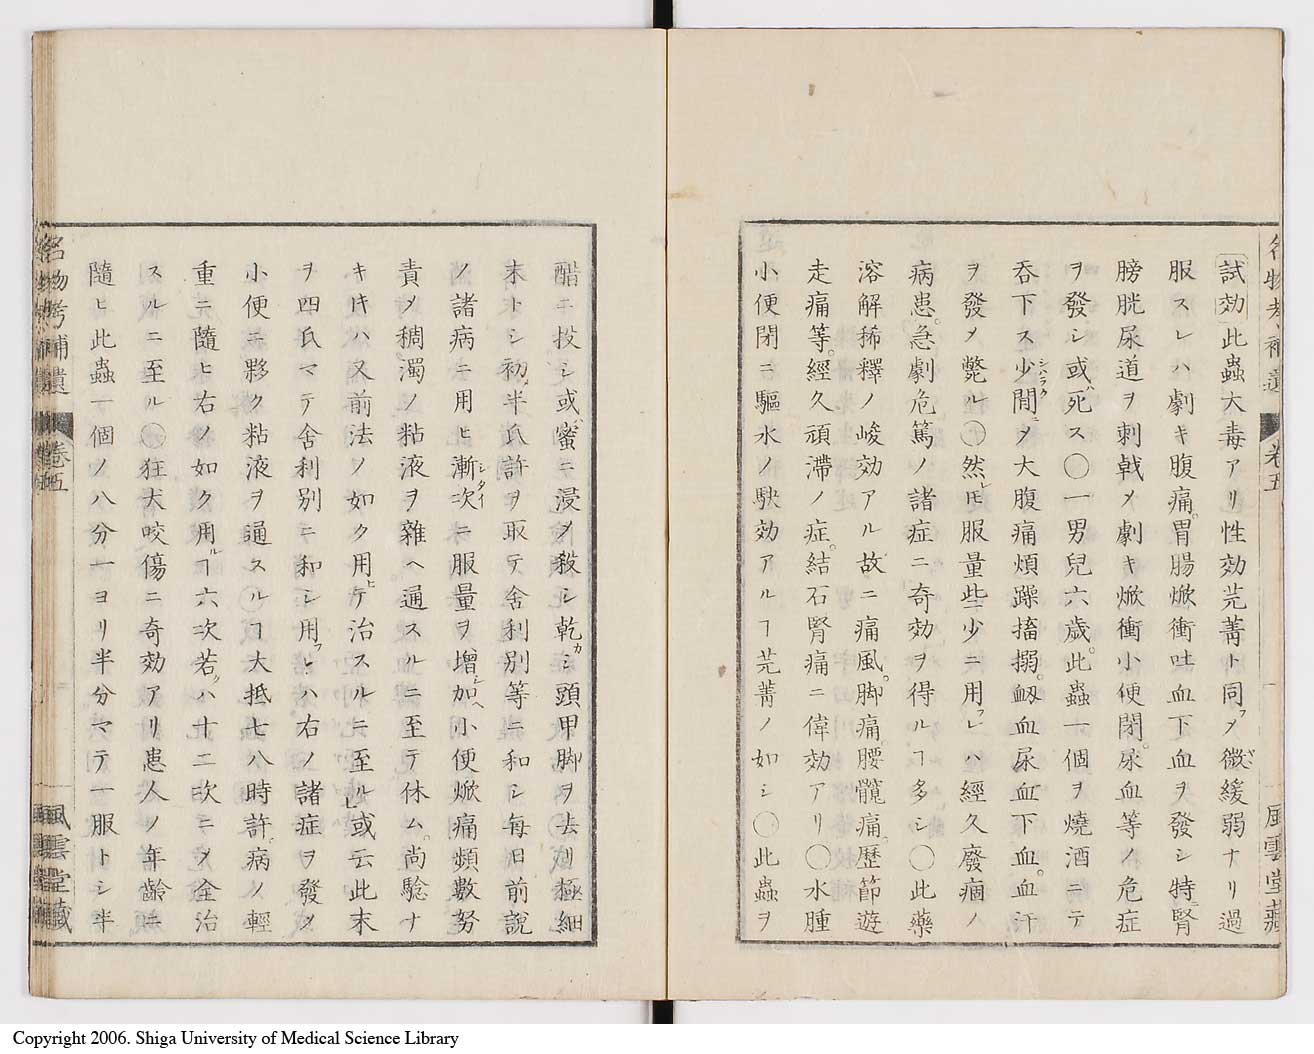 名物考補遺 卷五 風雲堂藏
試効此蟲大毒アリ性効芫菁ト同フメ微緩弱ナリ過
服スレハ劇キ腹痛。胃腸焮衝吐血下血ヲ發シ特ニ腎
膀胱尿道ヲ刺戟メ劇キ焮衝小便閉。尿血等ノ危症
ヲ發シ或ハ死ス〇一男兒六歳。此蟲一個ヲ燒酒ニテ
吞下ス少間シハラクニメ大腹痛煩躁搐搦。衂血尿血下血。血汗
ヲ發メ斃ル〇然レ𪜈服量些少ニ用フレハ經久廢痼ノ
病患。急劇危篤ノ諸症ニ奇効ヲ得ルヿ多シ〇此藥
溶解稀釋ノ峻効アル故ニ痛風。脚痛。腰髖痛。歷節遊
走痛等。經久頑滯ノ症。結石腎痛ニ偉効アリ〇水腫
小便閉ニ驅水ノ駃効アルヿ芫菁ノ如シ〇此蟲ヲ
醋ニ投シ或ハ蜜ニ浸メ殺シ乾カシ頭甲脚ヲ去リ極細
末トシ初メ半氏許ヲ取テ舍利別等ニ和シ每日前説
ノ諸病ニ用ヒ漸次シダイニ服量ヲ增加シヘ小便焮痛頻數努
責メ稠濁ノ粘液ヲ雜ヘ通スルニ至テ休ム。尚驗ナ
キ𪜈ハ又前法ノ如ク用ヒテ治スルニ至ル或云此末
ヲ四氏マテ舍利別ニ和シ用フヒハ右ノ諸症ヲ發メ
小便ニ夥ク粘液ヲ通スルヿ大抵七八時許。病ノ輕
重ニ隨ヒ右ノ如ク用ルヿ六次若クハ十二次ニメ全治
スルニ至ル〇狂犬咬傷ニ奇効アリ患人ノ年齡ニ
隨ヒ此蟲一個ノ八分一ヨリ半分マテ一服トシ半
名物考補遺 卷五 風雲堂藏
Copyright 2006. Shiga University of Medical Science Library